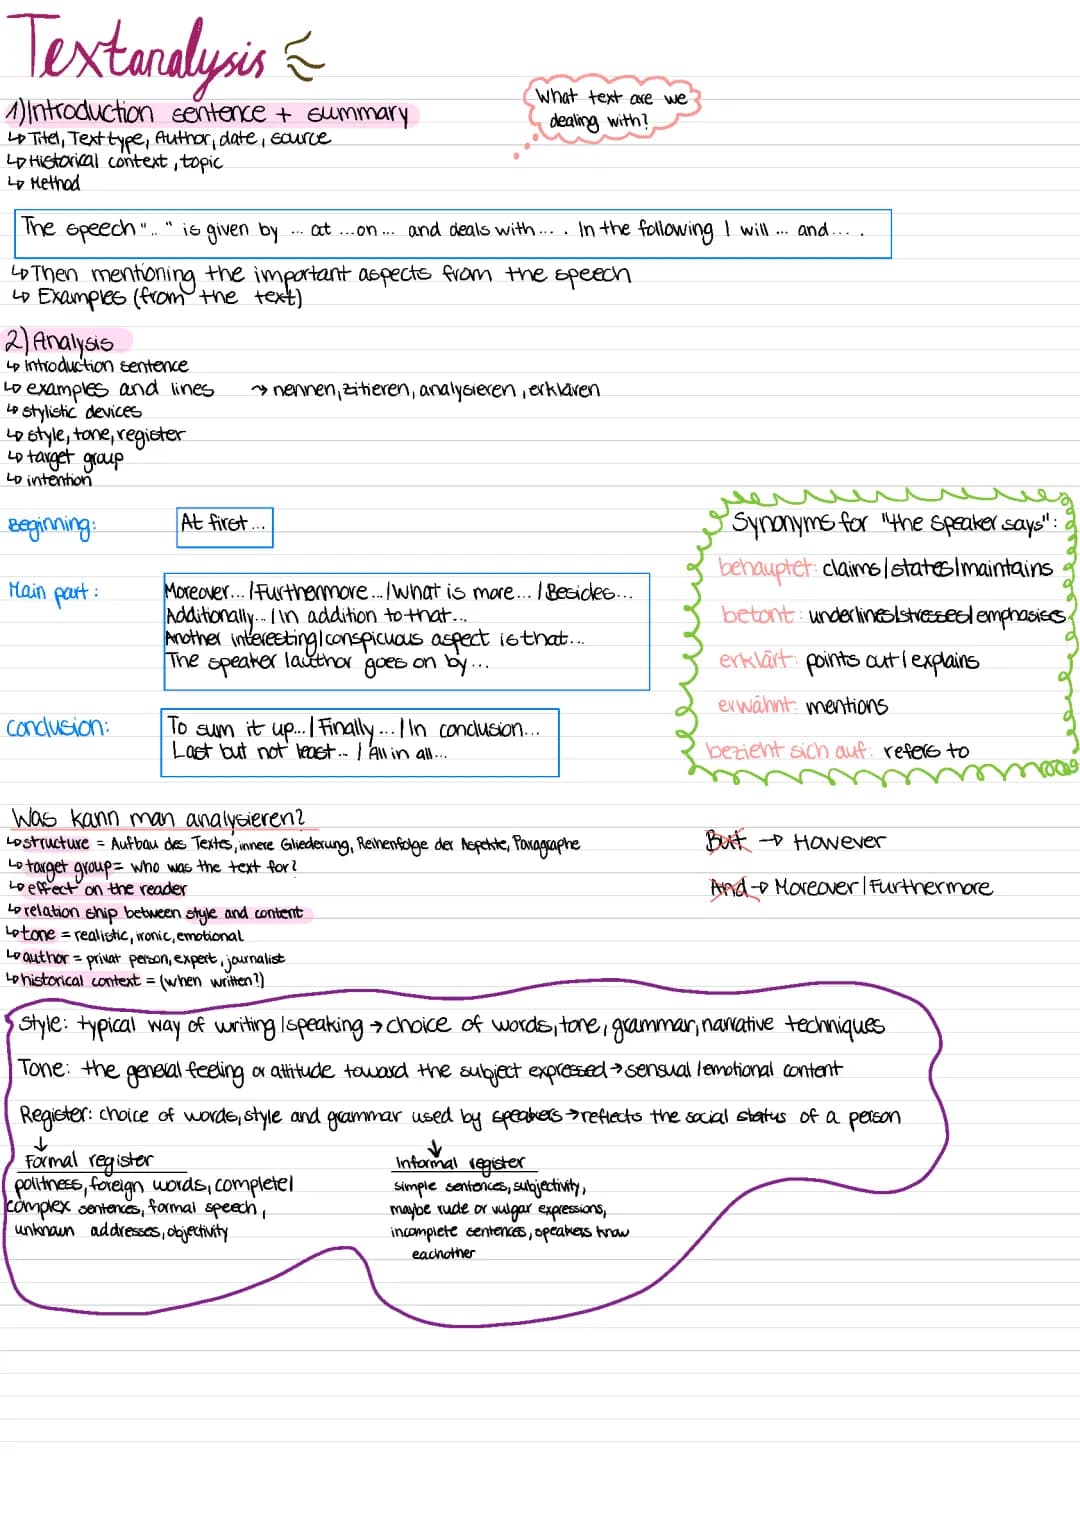 Textanalysis
1) Introduction sentence + summary
↳ Titel, Text type, Author, date, source
↳ Historical context, topic
↳ Method
What text are we
dealing with?
The speech ".." is given by ... at ... on ... and deals with ... . In the following I will ... and ... .
↳ Then mentioning the important aspects from the speech
↳ Examples (from the text)
2) Analysis
↳ Introduction sentence
↳ examples and lines → nennen, zitieren, analysieren, erklären
↳ stylistic devices
↳ style, tone, register
↳ target group
↳ intention
Beginning: At first ...
Main part: Moreover... / Furthermore ... / What is more... / Besides...
Additionally... / In addition to that...
Another interesting/conspicuous aspect is that...
The speaker / author goes on by ...
Conclusion: To sum it up... / Finally ... / In conclusion...
Last but not least ... / All in all...
Synonyms for "the speaker says":
behauptet: claims / states / maintains
betont: underlines / stresses / emphasises
erklärt: points out / explains
erwähnt: mentions
bezieht sich auf: refers to
Was kann man analysieren?
↳ structure = Aufbau des Textes, innere Gliederung, Reihenfolge der Aspekte, Paragraphe
↳ target group = who was the text for?
↳ effect on the reader
↳ relation ship between style and content
↳ tone = realistic, ironic, emotional
↳ author = privat person, expert, journalist
↳ historical context = (when written?)
But → However
And → Moreover / Furthermore
Style: typical way of writing / speaking → choice of words, tone, grammar, narrative techniques
Tone: the general feeling or attitude toward the subject expressed → sensual / emotional content
Register: choice of words, style and grammar used by speakers → reflects the social status of a person
↓
Formal register
politness, foreign words, complete /
complex sentences, formal speech,
unknown addresses, objectivity
↓
Informal register
simple sentences, subjectivity,
maybe rude or vulgar expressions,
incomplete sentences, speakers know
eachother